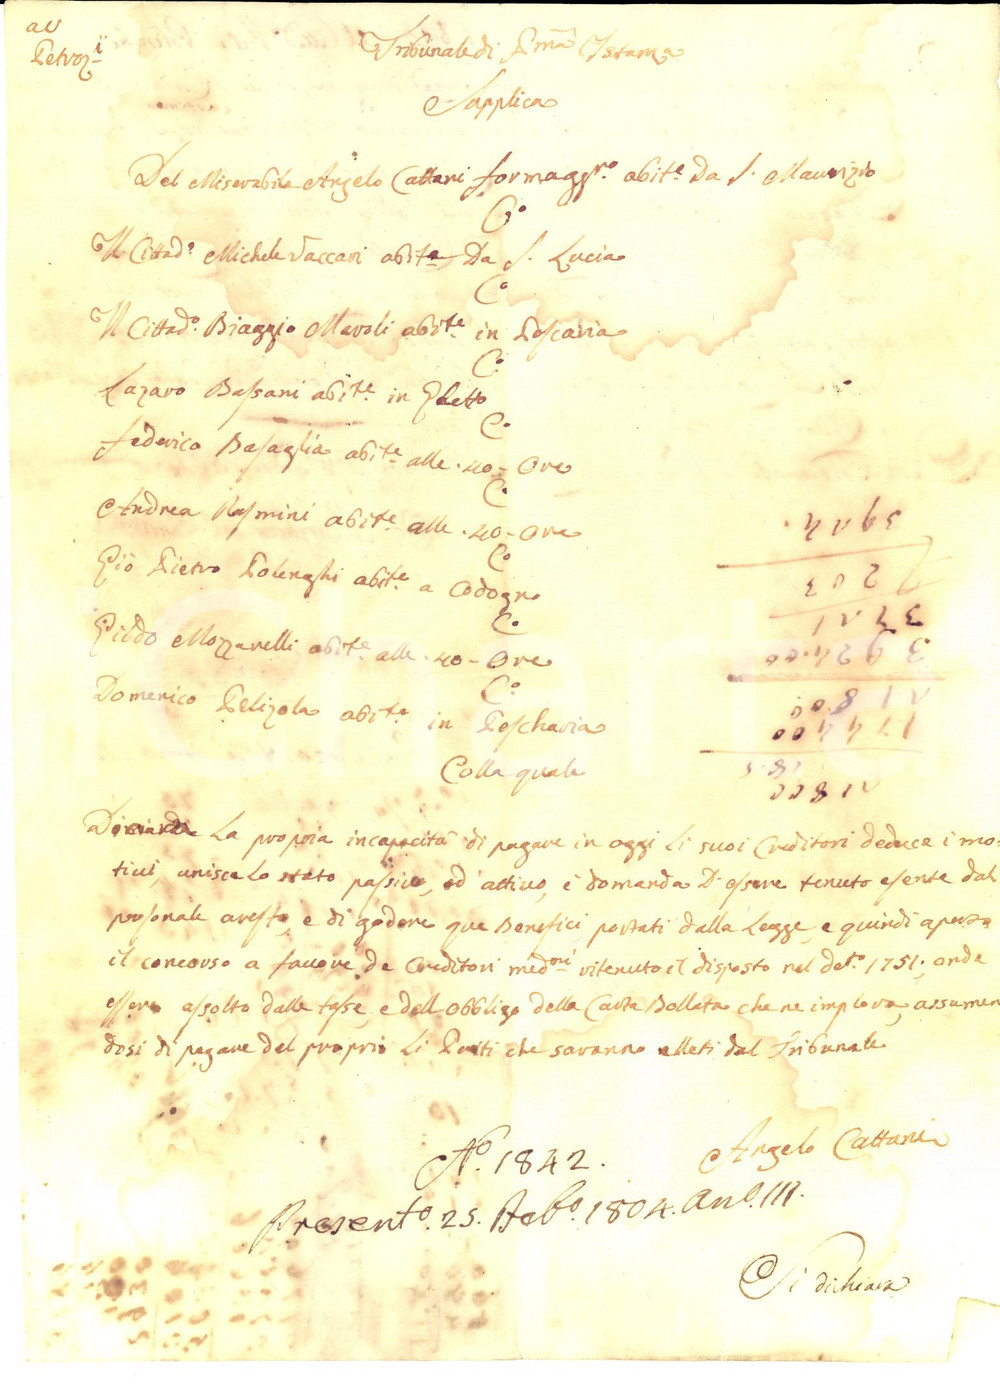 Tribunale di P.ma Istanza
Supplica
Del Miserabile Angelo Cattani formagg.ro abit.e Da S. Maurizio
C.o
Il Cittad.o Michele Vaccari abit.e Da S. Lucia
C.o
Il Cittad.o Biaggio Maroli abit.e in Pescaria
C.o
Lazaro Bassani abit.e in Ghetto
C.o
Federico Basaglia abit.e alle .40- Ore
C.o
Andrea Rasmini abit.e alle .40- Ore
C.o
Gio Pietro Polenghi abit.e a Codogno
C.o
Gildo Mozzarelli abit.e alle .40- Ore
C.o
Domenico Pelizola abit.e in Pescharia
Colla quale
La propria incapacità di pagare in oggi li suoi Creditori deduce i mo=
tivi, unisce lo stato passivo, ed attivo, e domanda D'essere tenuto esente dal
personale aresto, e di godere que Benefici portati dalla Legge, e quindi aperto
il concorso a favore de Creditori med.mi ritenuto il disposto nel de.o 1751, onde
essere assolto dalle tasse, e dell'obbligo della Carta Bollata che ne implora, assumen
dosi di pagare del proprio li Periti che saranno elleti dal Tribunale
Angelo Cattani
N.o 1842.
Present.o 25. Feb.o 1804. An.o III.
Si dichiara